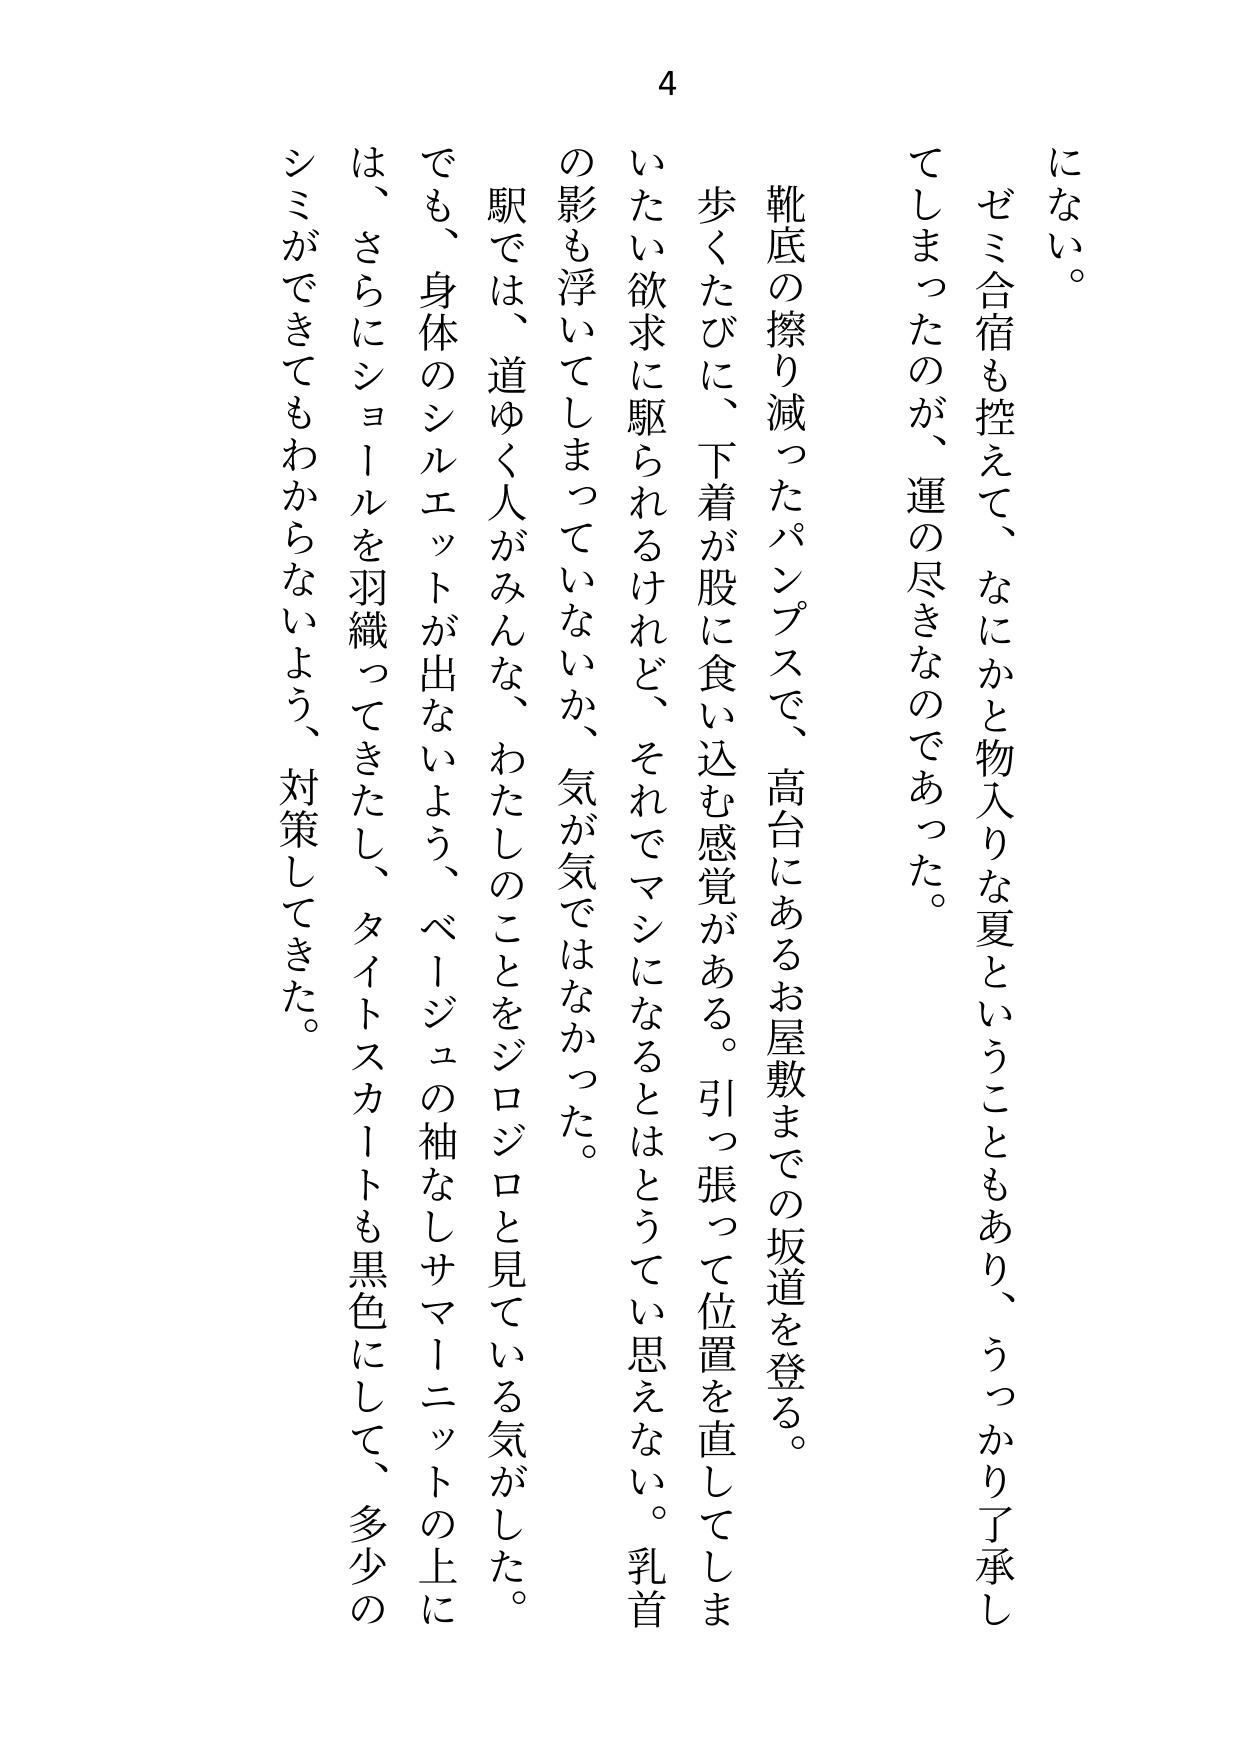 4
にない。
　ゼミ合宿も控えて、なにかと物入りな夏ということもあり、うっかり了承し
てしまったのが、運の尽きなのであった。
　靴底の擦り減ったパンプスで、高台にあるお屋敷までの坂道を登る。
　歩くたびに、下着が股に食い込む感覚がある。引っ張って位置を直してしま
いたい欲求に駆られるけれど、それでマシになるとはとうてい思えない。乳首
の影も浮いてしまっていないか、気が気ではなかった。
　駅では、道ゆく人がみんな、わたしのことをジロジロと見ている気がした。
でも、身体のシルエットが出ないよう、ベージュの袖なしサマーニットの上に
は、さらにショールを羽織ってきたし、タイトスカートも黒色にして、多少の
シミができてもわからないよう、対策してきた。